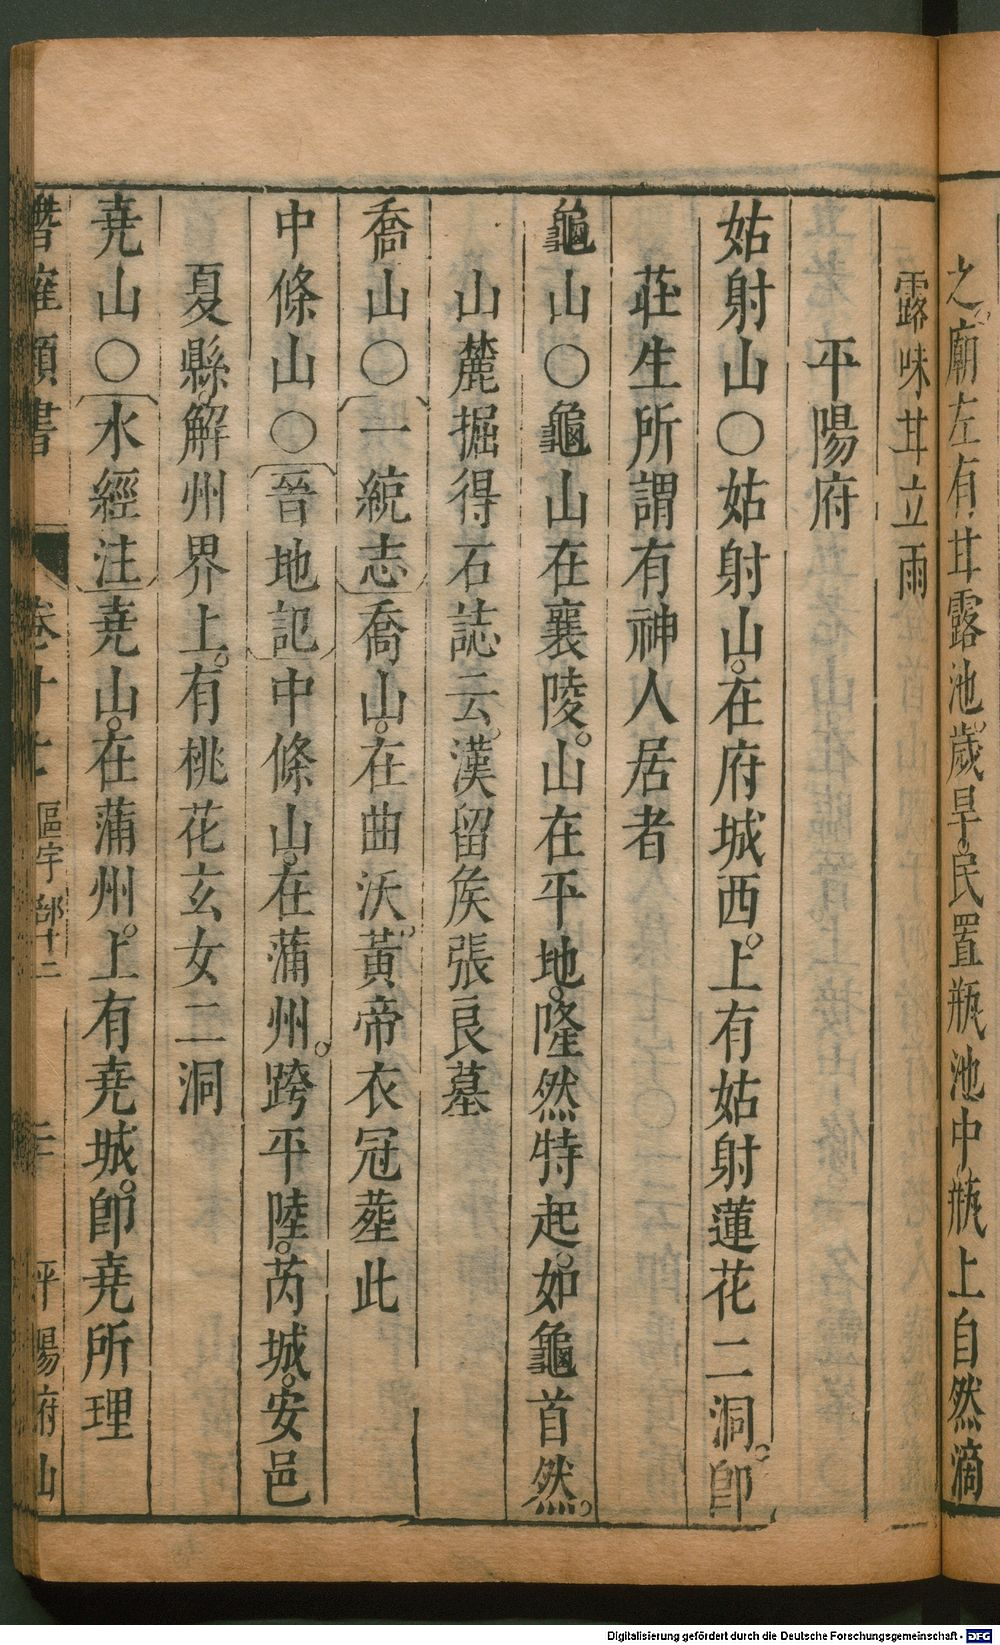 之廟左有甘露池歲旱民置瓶池中瓶上自然滴
露味甘立雨
平陽府
姑射山○姑射山。在府城西。上有姑射蓮花二洞。卽
莊生所謂有神人居者
龜山○龜山在襄陵。山在平地。隆然特起。如龜首然。
山麓掘得石誌云。漢留矦張良墓
喬山○〔一統志〕喬山。在曲沃。黃帝衣冠塟此
中條山○〔晉地記〕中條山。在蒲州。跨平陸。芮城。安邑
夏縣。解州界上。有桃花玄女二洞
堯山○〔水經注〕堯山。在蒲州。上有堯城。卽堯所理
類書 卷十七 區宇部十二 平陽府山
Digitalisierung gefördert durch die Deutsche Forschungsgemeinschaft - DFG